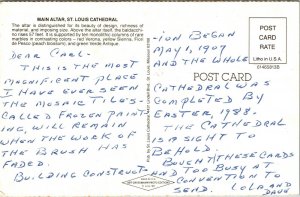 MAIN ALTAR, ST. LOUIS CATHEDRAL
The altar is distinguished for its beauty of design, richness of
material, and imposing size. Above the altar itself, the baldacchi-
no rises 57 feet. It is supported by ten monolithic columns of rare
marbles in contrasting colors – red Verona, yellow Sienna, Fior
de Pesco (peach blossom), and green Verde Antique.
DEAR CARL-
THIS IS THE MOST
MAGNIFICENT PLACE
I HAVE EVER SEEN
THE MOSAIC TILES-
CALLED FROZEN PAINT
ING, WILL REMAIN
WHEN THE WORK OF
THE BRUSH HAS
FADED.
BUILDING CONSTRUCT
-ION BEGAN
MAY 1, 1907
AND THE WHOLE
POST CARD
CATHEDRAL WAS
COMPLETED BY
EASTER, 1988.
THE CATHEDRAL
IS A SIGHT TO
BEHOLD.
BOUGHT THESE CARDS
AND TOO BUSY AT
CONVENTION TO
SEND. LOLA AND
DAVE
POST
CARD
RATE
Litho in U.S.A.